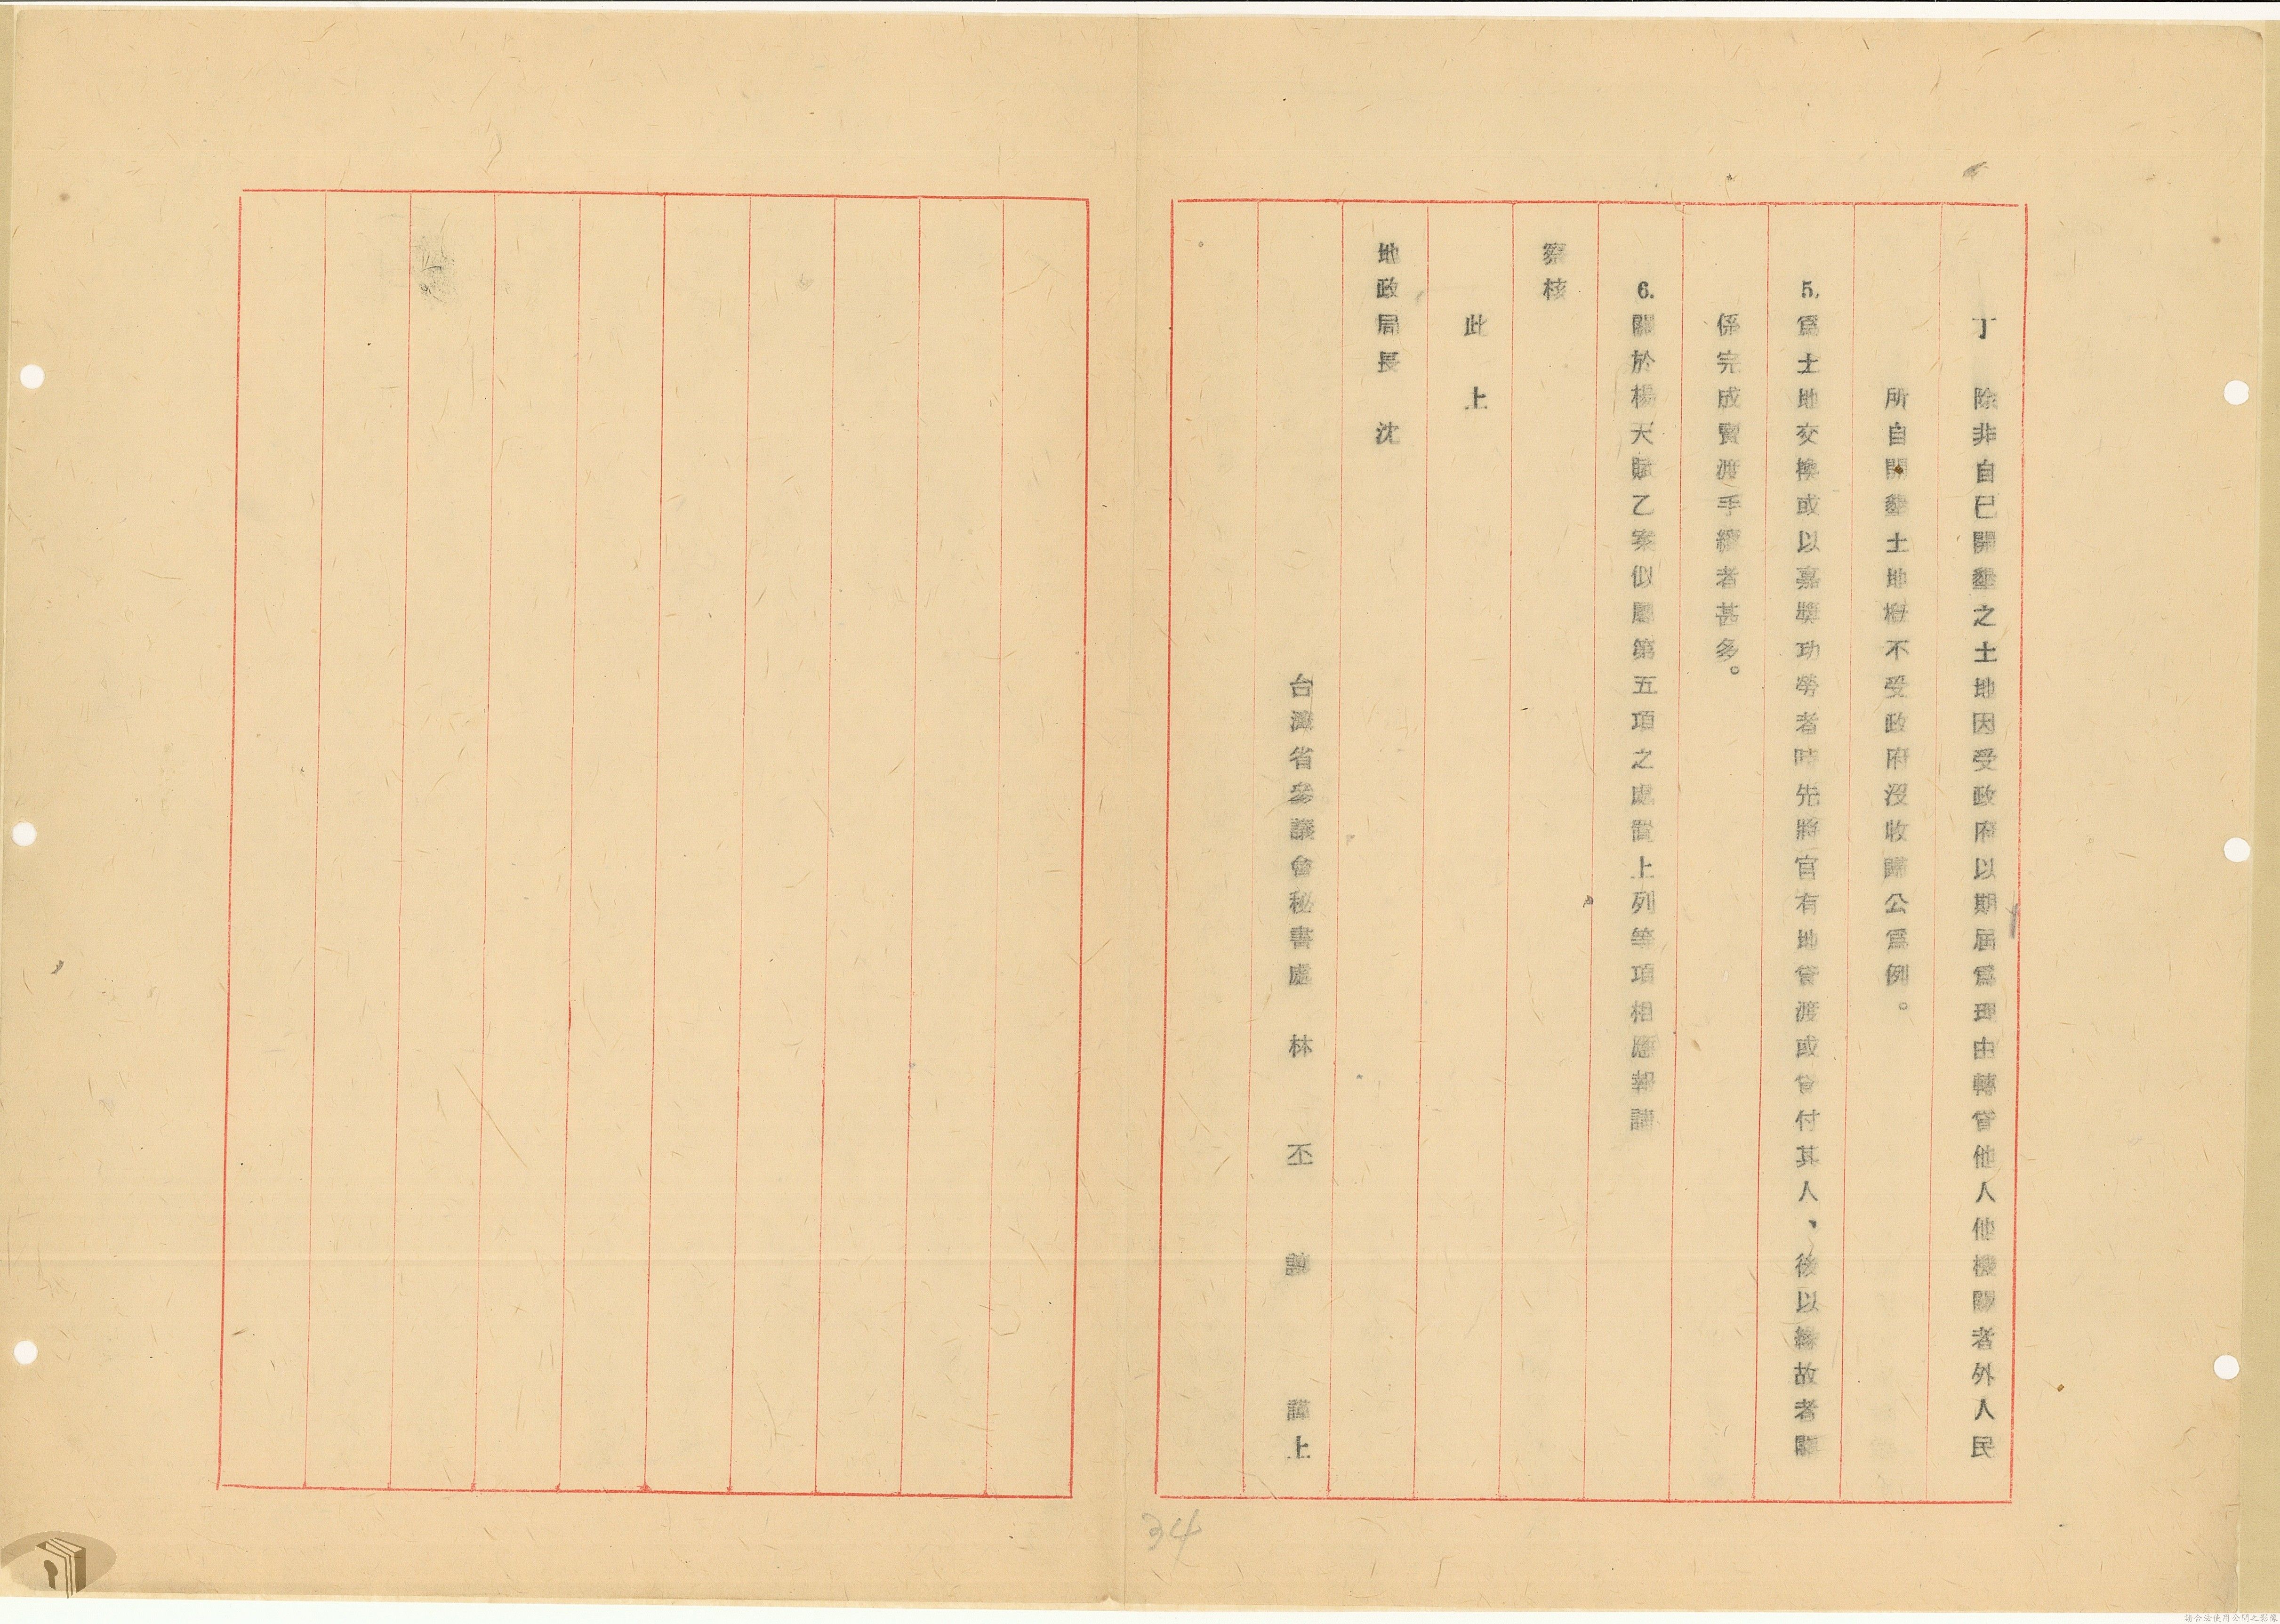 丁　除非自已開墾之土地因受政府以期屆爲理由轉貸他人他機關者外人民
所自開墾土地概不受政府沒收歸公爲例。
5.爲土地交換或以嘉獎功勞者時先將官有地貸渡或貸付其人、後以緣故者關
係完成賣渡手續者甚多。
6.關於楊天賦乙案似屬第五項之處置上列等項相應報請
察核
此上
地政局長　沈
台灣省參議會秘書處　林　丕　謨　謹上
34
請合法使用公開之影像